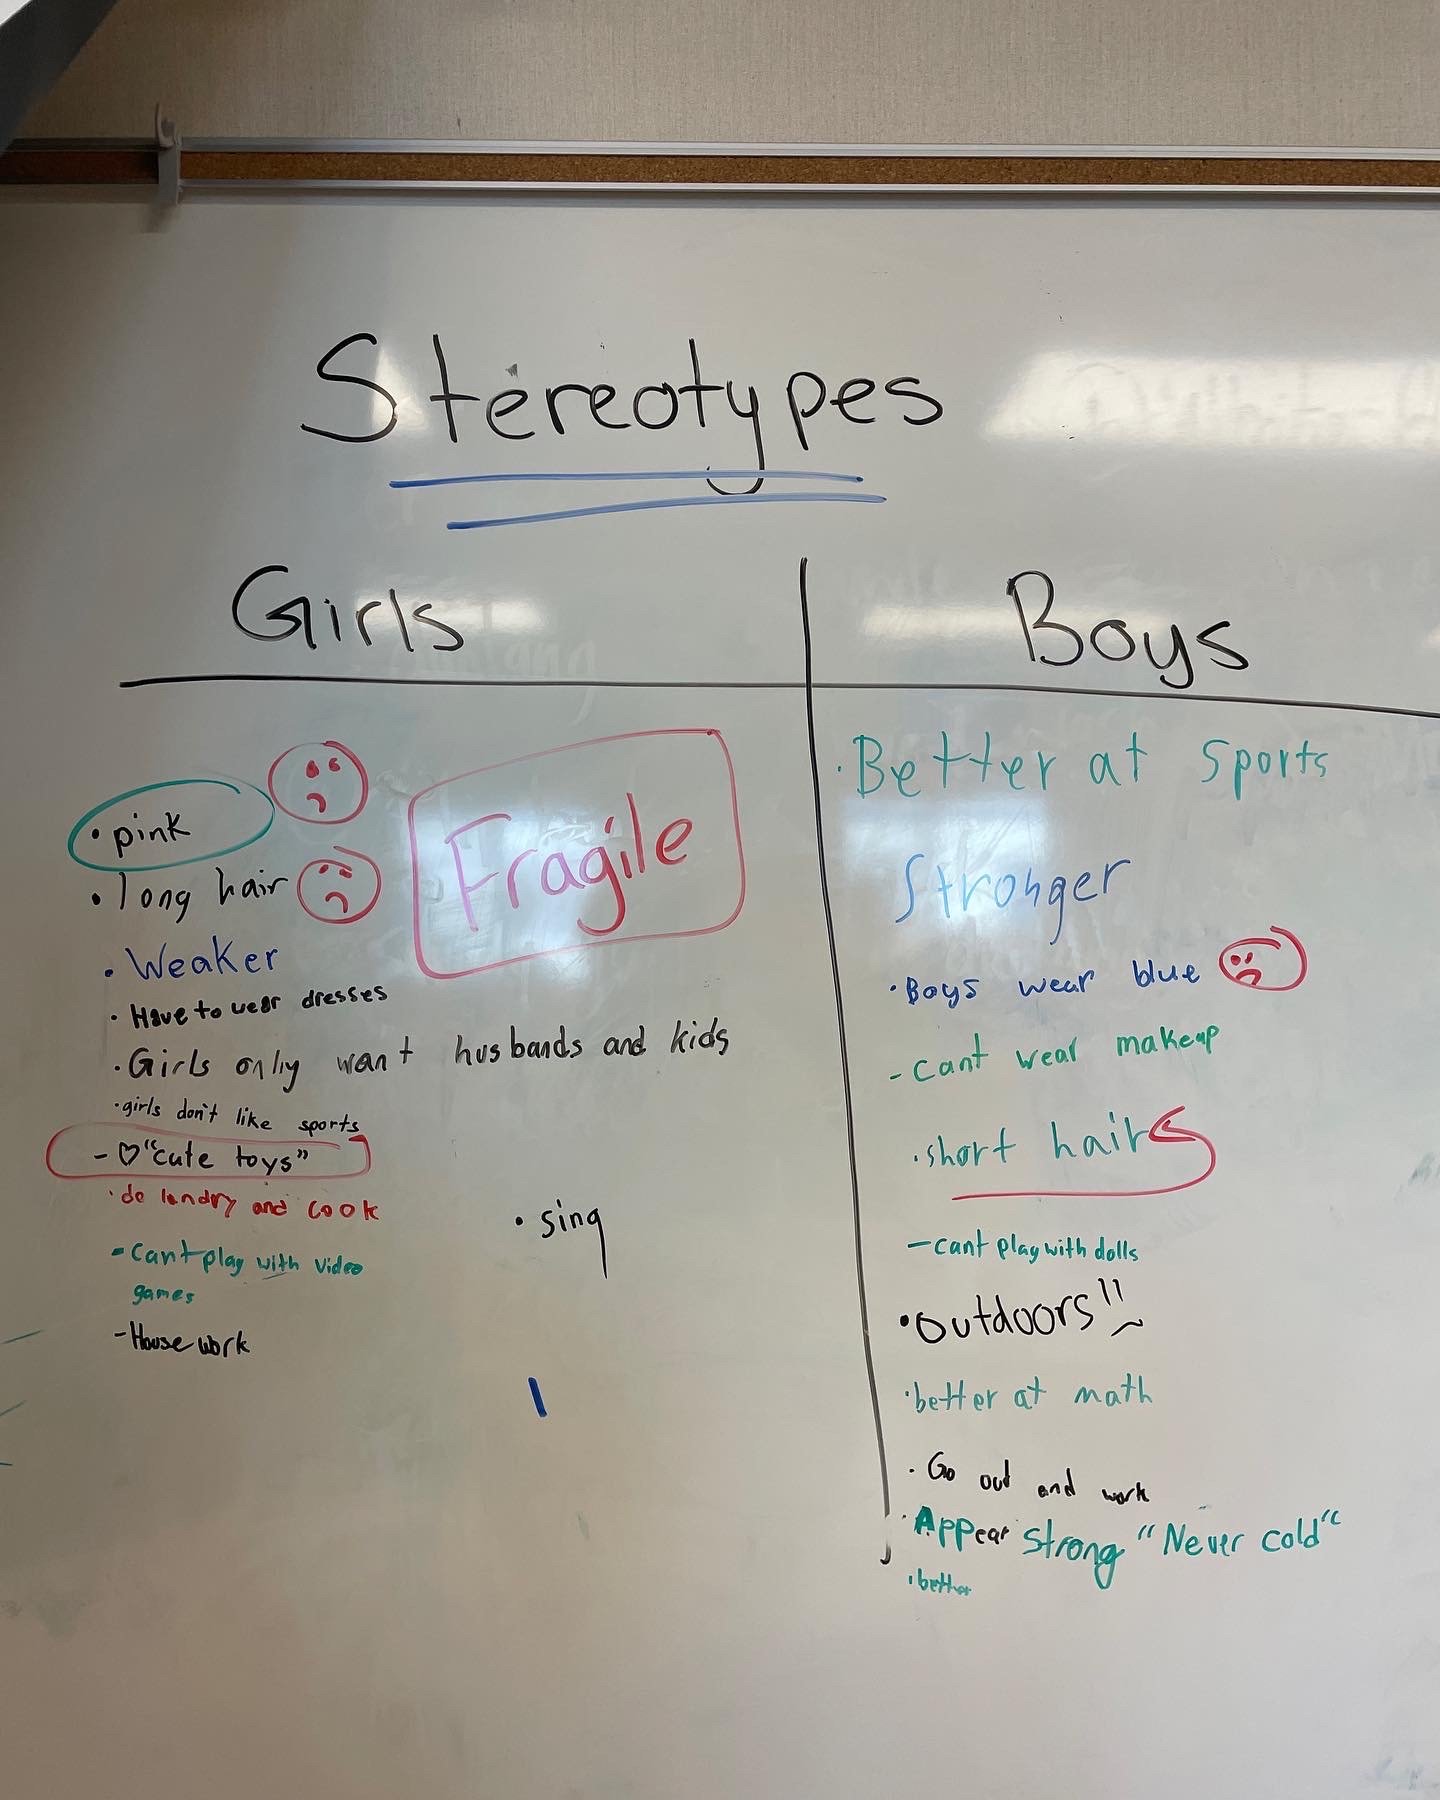 Stereotypes
Girls
Boys
• pink
Fragile
• long hair
• Weaker
• Have to wear dresses
• Girls only want husbands and kids
• girls don't like sports
- ♡ "cute toys"
• do landry and cook
• sing
- Cant play with video
games
- House work
• Better at sports
Stronger
• Boys wear blue
- cant wear makeup
• short hair
- cant play with dolls
• outdoors!!
• better at math
• Go out and work
• Appear Strong "Never cold"
• better